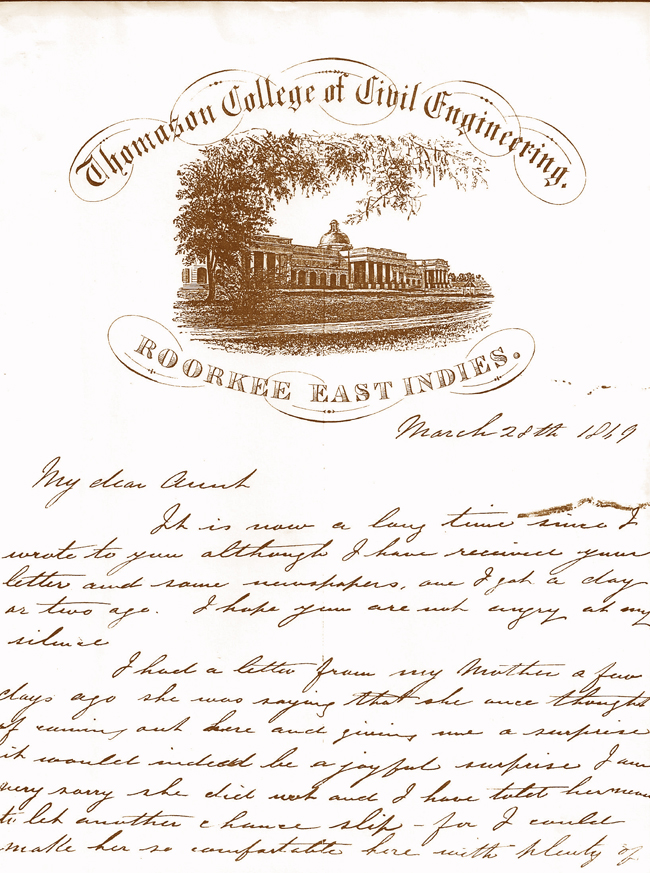 Thomason College of Civil Engineering.
ROORKEE EAST INDIES.
March 28th 1869
My dear Aunt
It is now a long time since I
wrote to you although I have received your
letter and some newspapers, one I got a day
or two ago. I hope you are not angry at my
silence
I had a letter from my Mother a few
days ago she was saying that she once thought
of coming out here and giving me a surprise
it would indeed be a joyful surprise I am
very sorry she did not and I have told her never
to let another chance slip - for I could
make her so comfortable here with plenty of